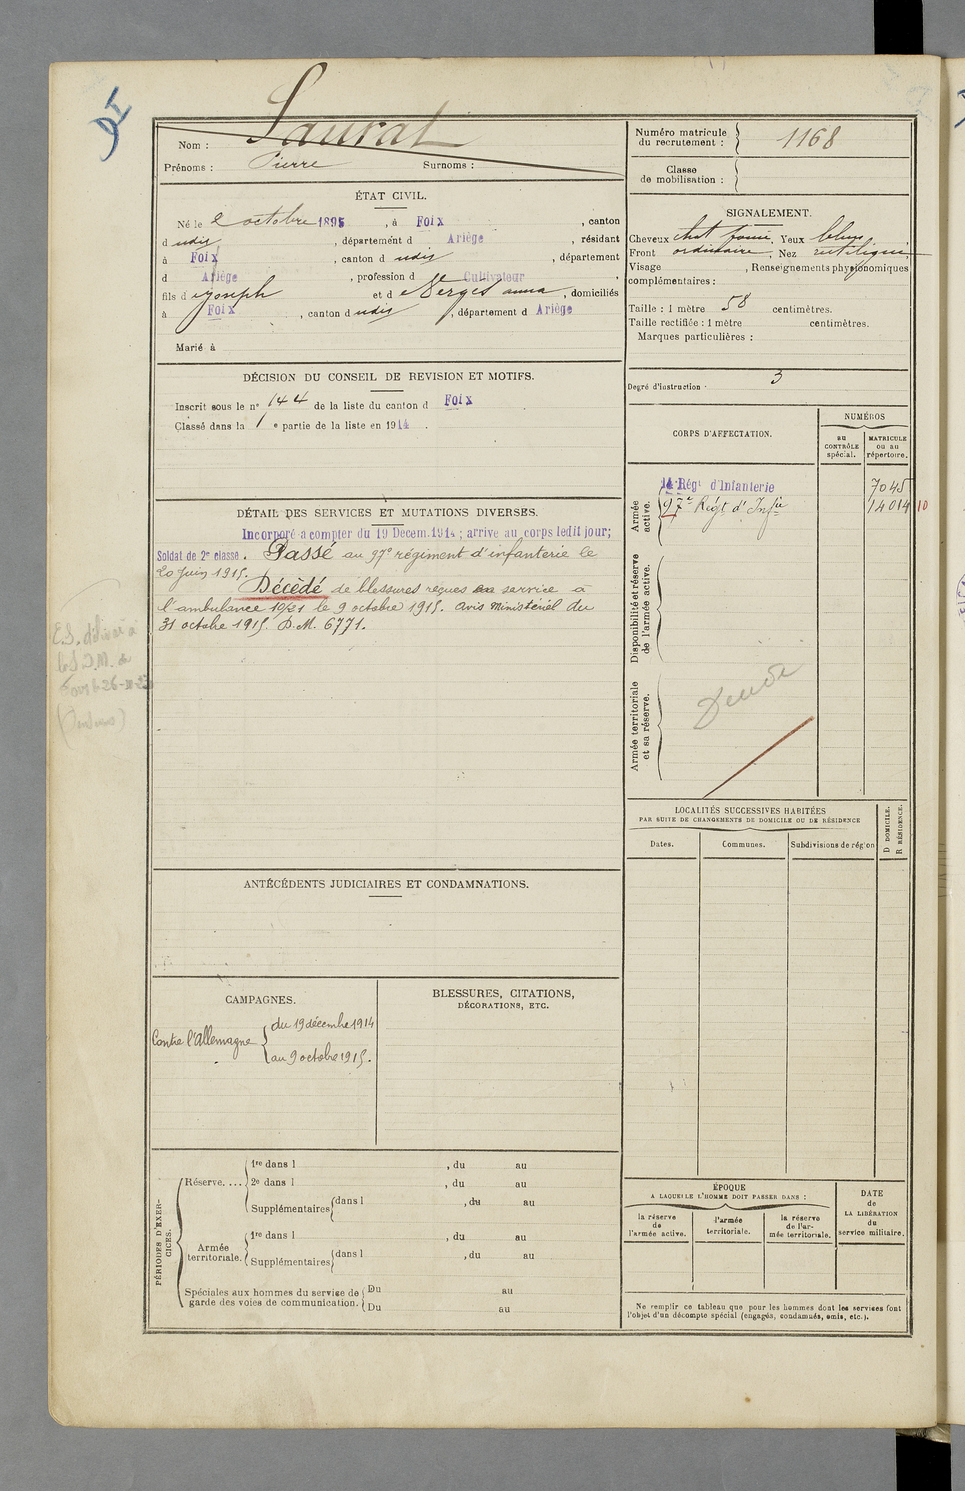 Nom : Saurat
Prénoms : Pierre Surnoms :
Numéro matricule du recrutement : 1168
Classe de mobilisation :
ÉTAT CIVIL.
Né le 2 octobre 1895, à Foix, canton
d udit, département d Ariège, résidant
à Foix, canton d udit, département
d Ariège, profession d Cultivateur
fils d e Joseph et d e Vergés anna, domiciliés
à Foix, canton d udit, département d Ariège
Marié à
SIGNALEMENT.
Cheveux chat foncé, Yeux bleus
Front ordinaire, Nez rectiligne
Visage , Renseignements physionomiques
complémentaires :
Taille : 1 mètre 58 centimètres.
Taille rectifiée : 1 mètre centimètres.
Marques particulières :
Degré d'instruction · 3
DÉCISION DU CONSEIL DE REVISION ET MOTIFS.
Inscrit sous le n° 144 de la liste du canton d Foix
Classé dans la 1 e partie de la liste en 1914.
CORPS D'AFFECTATION.
NUMÉROS
au CONTRÔLE spécial.
MATRICULE ou au répertoire.
Armée active.
14e Régt d'Infanterie 7045
97e Régt d'Infie 14014 10
Disponibilité et réserve de l'armée active.
Armée territoriale et sa réserve.
DÉTAIL DES SERVICES ET MUTATIONS DIVERSES.
Incorporé à compter du 19 Décem. 1914 ; arrive au corps ledit jour;
Soldat de 2e classe. Passé au 97e régiment d'infanterie le
20 juin 1915.
Décédé de blessures reçues en service à
l'ambulance 10/21 le 9 octobre 1915. avis ministériel du
31 octobre 1915. D.M. 6771.
LOCALITÉS SUCCESSIVES HABITÉES
PAR SUITE DE CHANGEMENTS DE DOMICILE OU DE RÉSIDENCE
Dates. Communes. Subdivisions de région
D DOMICILE.
R RÉSIDENCE.
ANTÉCÉDENTS JUDICIAIRES ET CONDAMNATIONS.
CAMPAGNES.
Contre l'Allemagne du 19 décembre 1914
au 9 octobre 1915.
BLESSURES, CITATIONS,
DÉCORATIONS, ETC.
PÉRIODES D'EXERCICES.
Réserve....
1re dans l , du au
2e dans l , du au
Supplémentaires dans l , du au
Armée territoriale.
1re dans l , du au
Supplémentaires dans l , du au
Spéciales aux hommes du service de garde des voies de communication.
Du au
Du au
ÉPOQUE
A LAQUELLE L'HOMME DOIT PASSER DANS :
la réserve de l'armée active.
l'armée territoriale.
la réserve de l'armée territoriale.
DATE de LA LIBÉRATION du service militaire.
Ne remplir ce tableau que pour les hommes dont les services font
l'objet d'un décompte spécial (engagés, condamnés, omis, etc.).